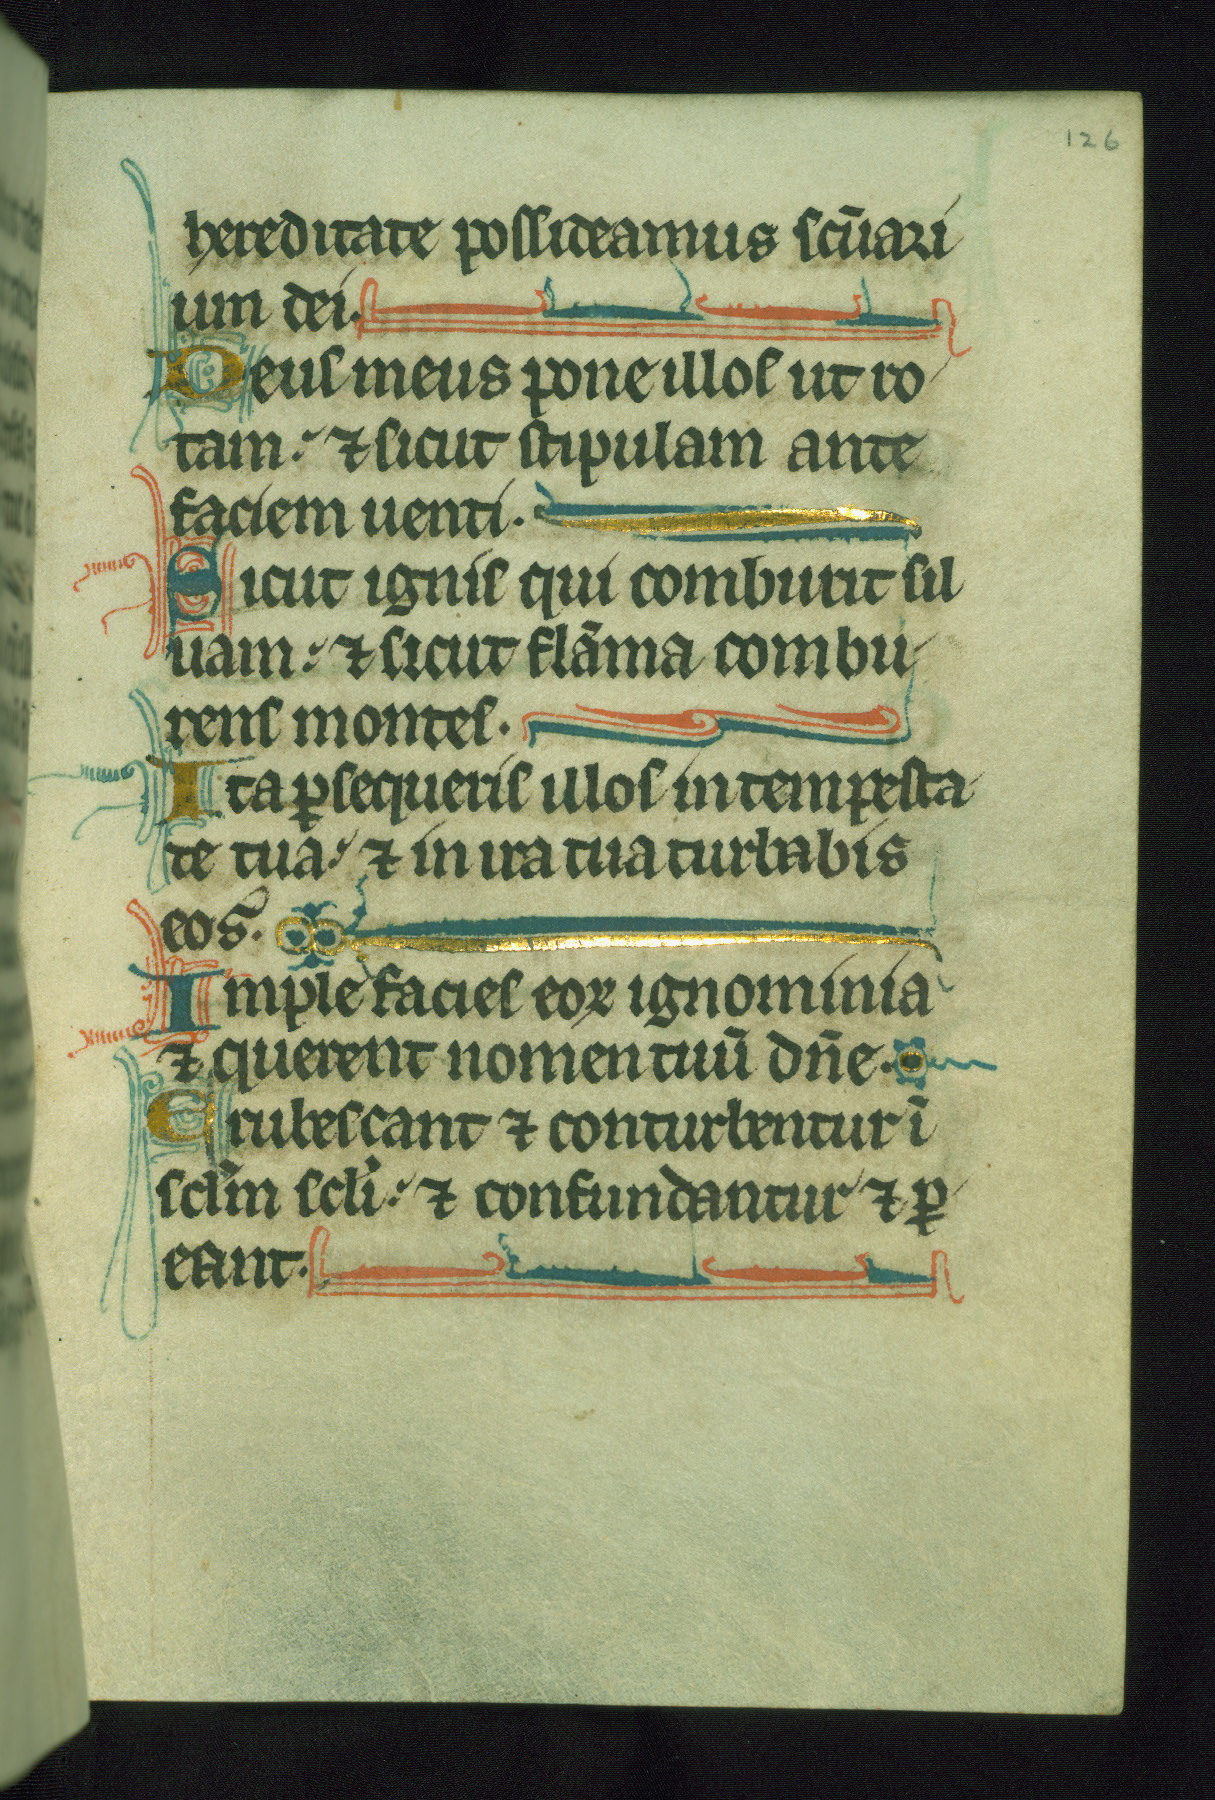 126
hereditate possideamus scūari
um dei.
Deus meus pone illos ut ro
tam: ⁊ sicut stipulam ante
faciem uenti.
Sicut ignis qui comburit sil
uam: ⁊ sicut flāma combu
rens montes.
Ita ꝑsequeris illos in tempesta
te tua: ⁊ in ira tua turbabis
eos.
Imple facies eoꝝ ignominia
⁊ querent nomen tuū dn̄e.
Erubescant ⁊ conturbentur ī
sclm̄ scli: ⁊ confundantur ⁊ ꝑ
eant.